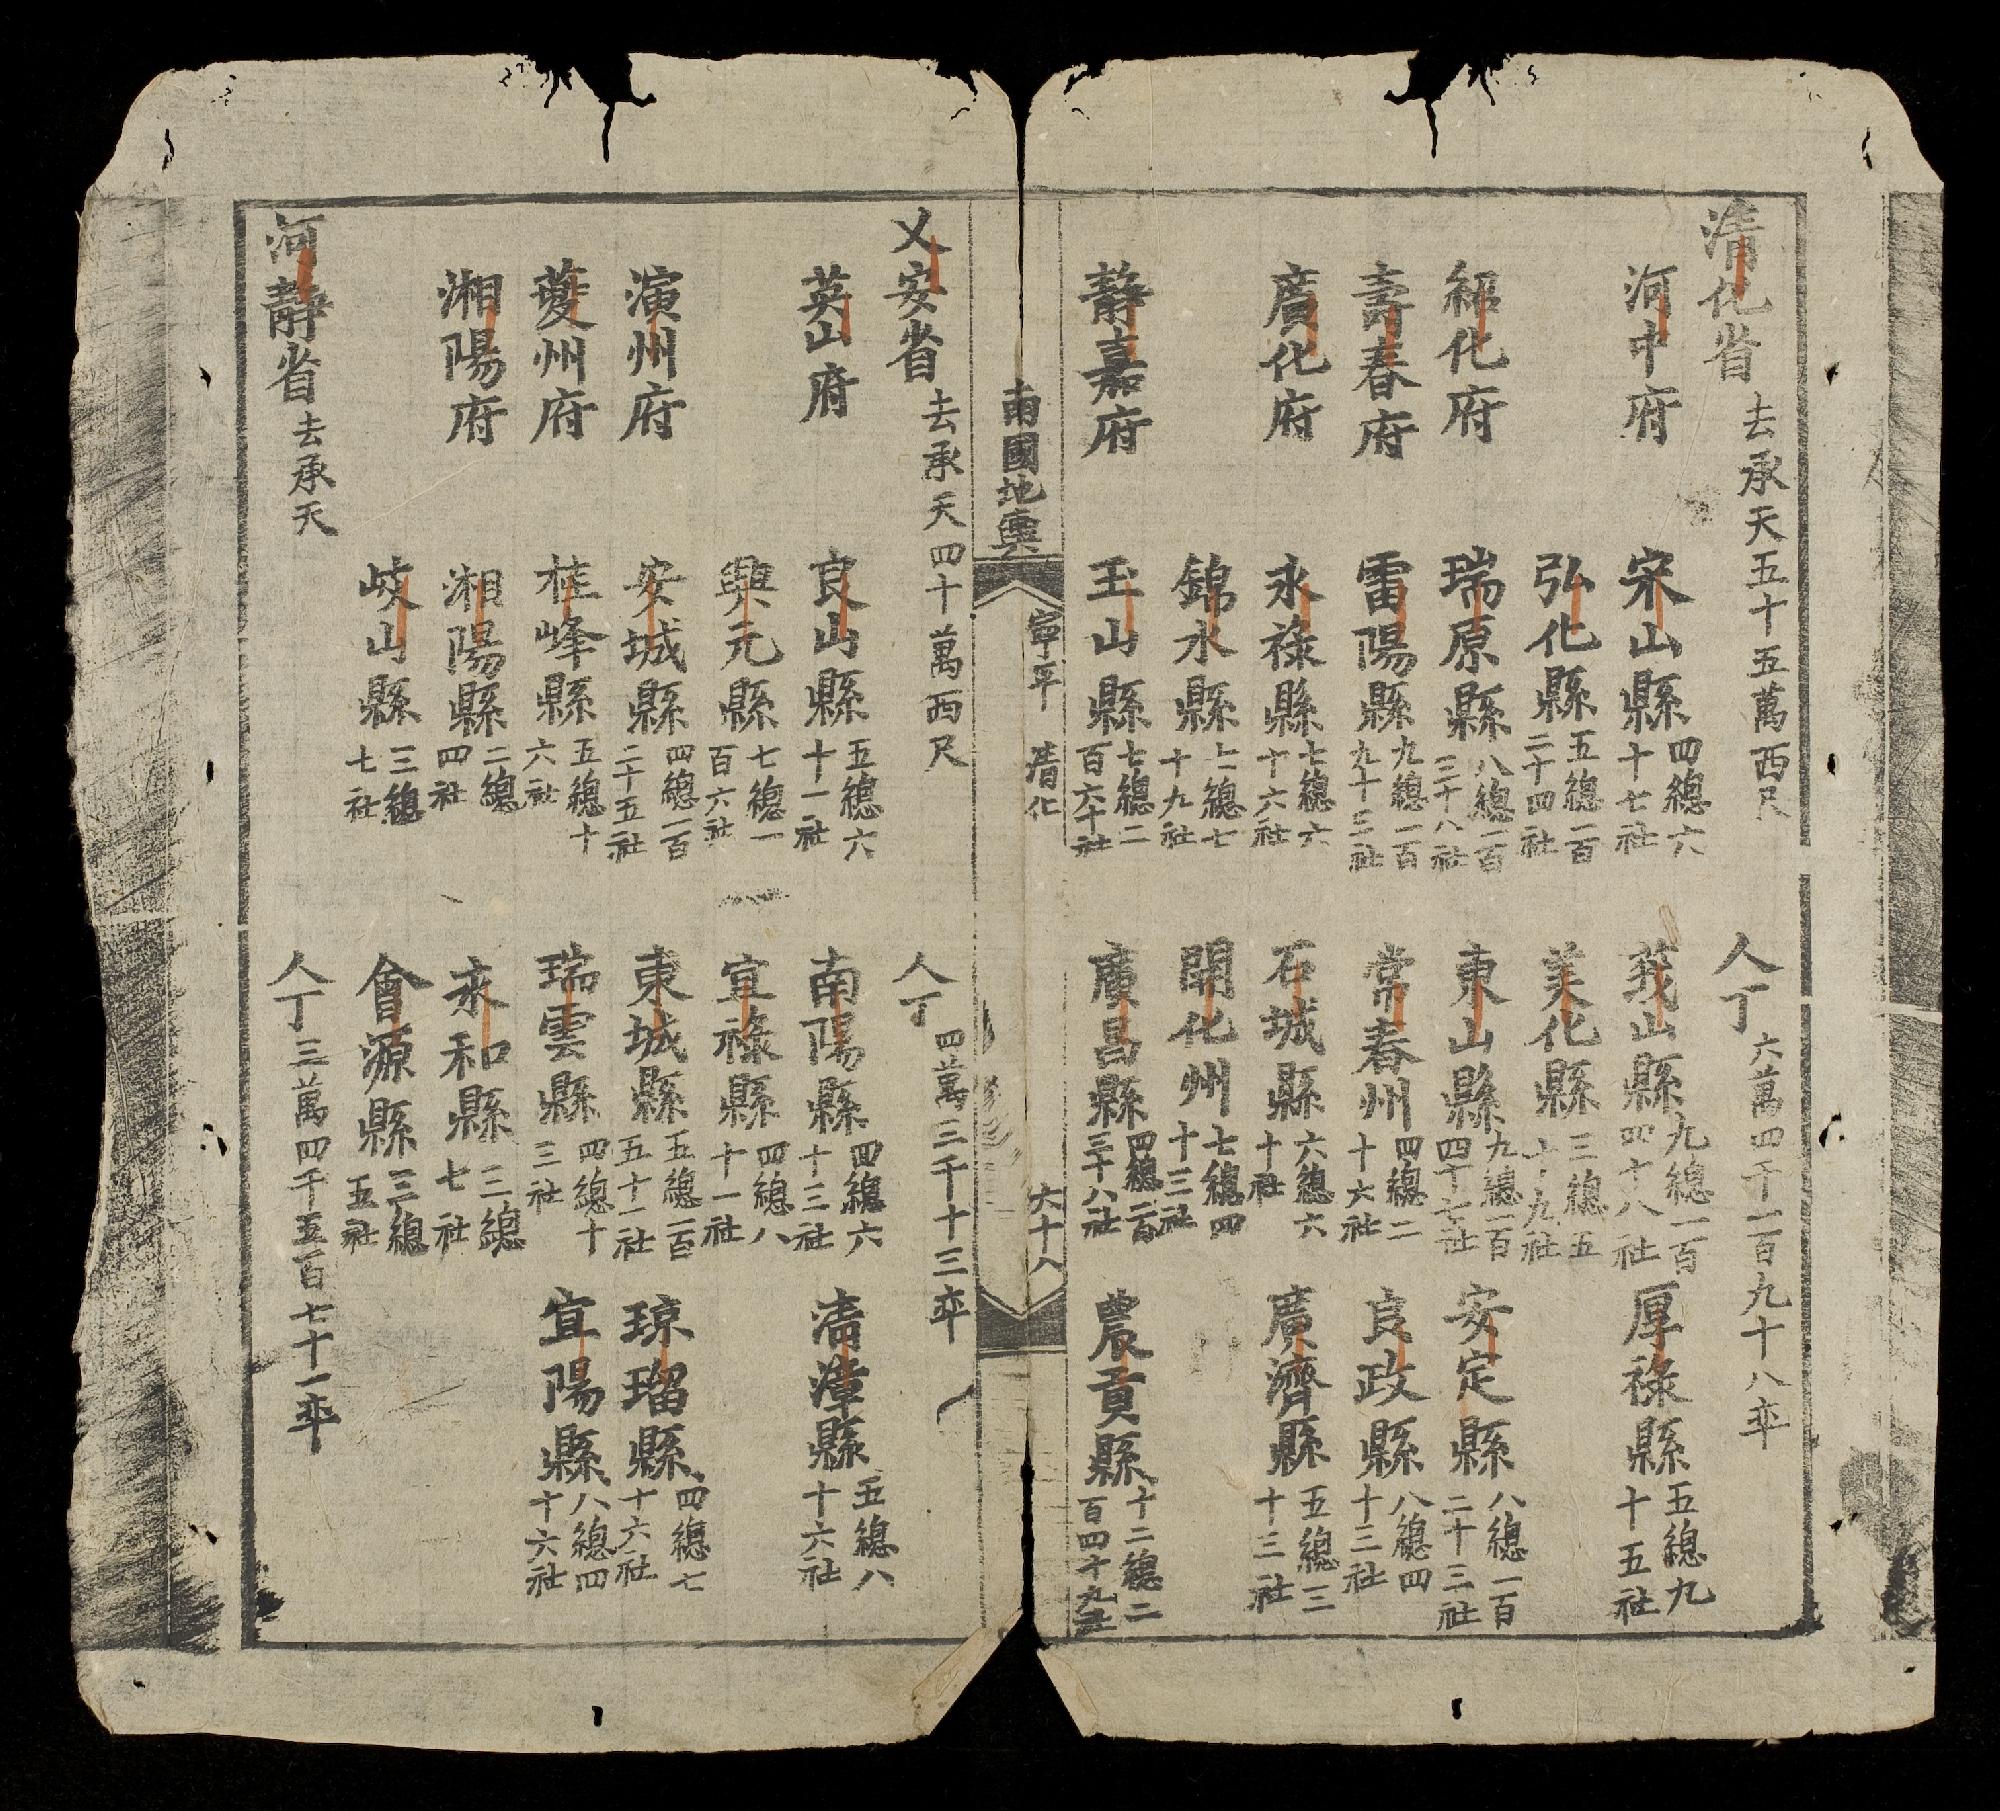 清化省 去承天五十五萬西尺 人丁 六萬四千一百九十八率
河中府 宋山縣 四總六十七社 莪山縣 九總一百四十八社 厚祿縣 五總九十五社
弘化縣 五總一百二十四社 美化縣 三總五十九社
紹化府 瑞原縣 八總一百三十八社 東山縣 九總一百四十七社 安定縣 八總一百二十三社
壽春府 雷陽縣 九總一百九十三社 常春州 四總二十六社 良政縣 八總四十三社
廣化府 永祿縣 七總六十六社 石城縣 六總六十社 廣濟縣 五總三十三社
錦水縣 七總七十九社 開化州 七總四十三社
靜嘉府 玉山縣 七總二百六十社 廣昌縣 四總一百三十八社 農貢縣 十二總二百四十九社
南國地輿 寧平 清化 六十八
乂安省 去承天四十萬西尺 人丁 四萬三千十三率
英山府 良山縣 五總六十一社 南陽縣 四總六十三社 清漳縣 五總八十六社
興元縣 七總一百六社 宜祿縣 四總八十一社
演州府 安城縣 四總一百二十五社 東城縣 五總一百五十一社 琼瑠縣 四總七十六社
葵州府 桂峰縣 五總十六社 瑞雲縣 四總十三社 宜陽縣 八總四十六社
湘陽府 湘陽縣 二總四社 永和縣 三總七社
岐山縣 三總七社 會源縣 三總五社
河靜省 去承天 人丁 三萬四千五百七十一率